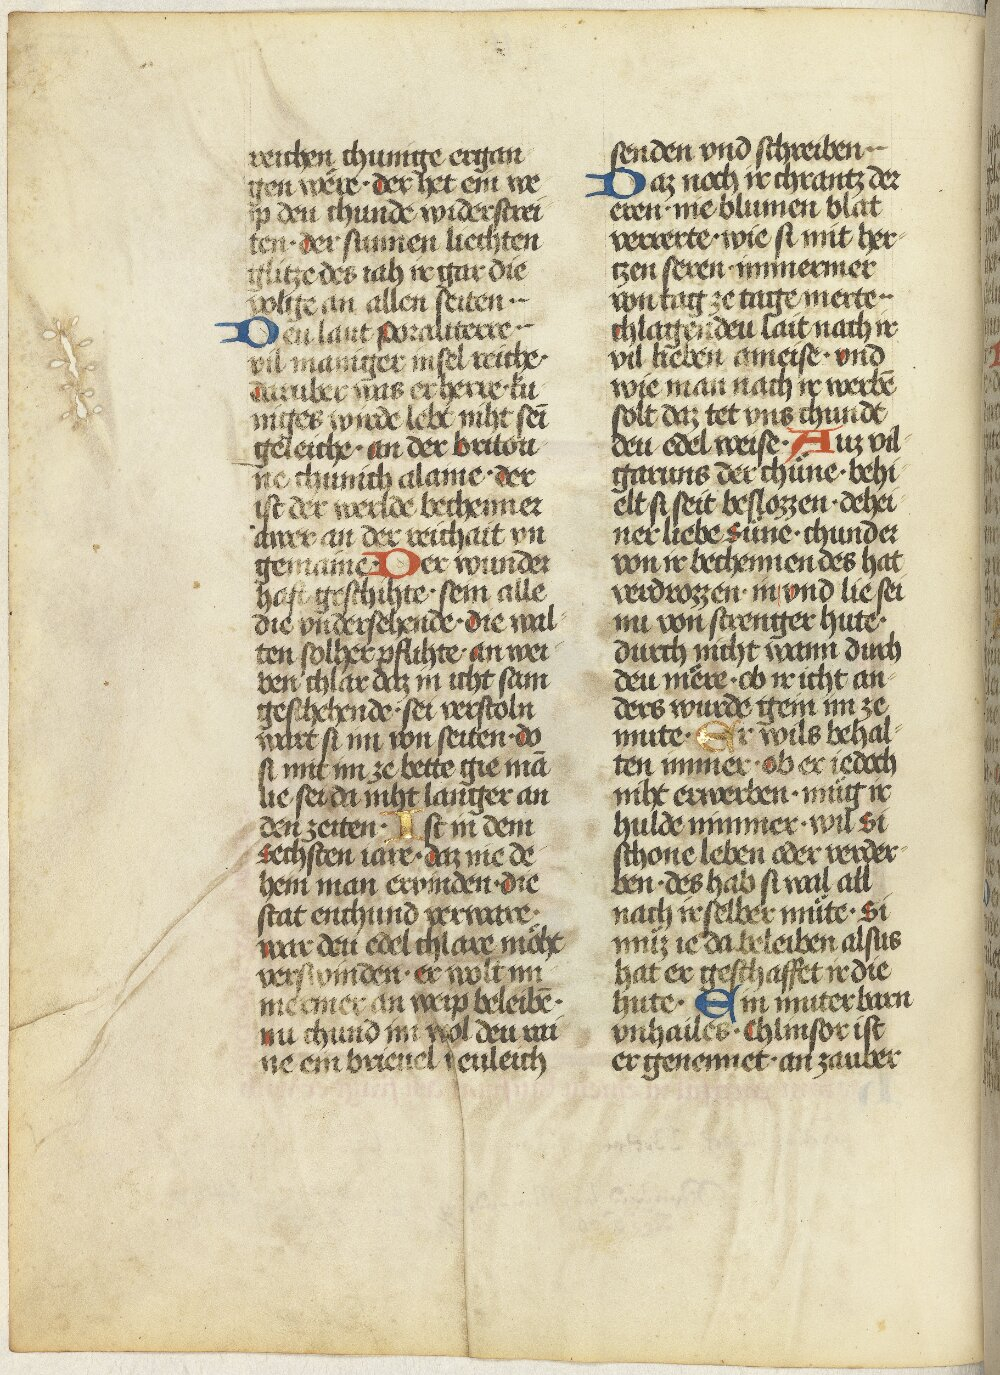 reichen chunige ergan
gen wêre · der het ein we
ip deu chunde widerstrei
ten · der sunnen liechten
glitze des iah ir gar die
volge an allen seiten ··
Deu lant poraliterre ··
vil maniger insel reiche ·
daruber was er herre · ku
niges wirde lebt niht sei
geleiche · an der britou
ne chunich alame · der
ist der werlde bechenner
awer an der reichait vn
gemaine · Der wunder
haft geschihte · sein alle
die vndersehende · die wal
ten solher pflihte · an wei
ben chlar daz in icht sam
geschehende · sei verstoln
wart si im von seiten · do
si mit im ze bette gie mā
lie sei da niht langer an
den zeiten · Ist in dem
sechsten iare · daz nie de
hein man ervinden · die
stat enchund verware ·
war deu edel chlare möht
verswinden · er wolt im
mermer an weip beleibē ·
nu chund im wol deu rai
ne ein brieuel teuleich
senden vnd schreiben ··
Daz noch ir chrantz der
eren · nie blumen blat
verrerte · wie si mit her
tzen seren · immermer
von tag ze tage merte ··
chlagendeu lait nach ir
vil lieben ameise · vnd
wie man nach ir werbē
solt daz tet vns chundt
deu edel weise · Auz vil
garuns der chüne · behi
elt si seit beslozzen · dehei
ner liebe süne · chunder
von ir bechennen des hat
verdrozzen · in vnd lie sei
nu von strenger hute ·
durch nicht wann durch
deu mêre · ob ir icht an
ders wurde gein im ze
mute · Er wils behal
ten immer · ob er iedoch
niht erwerben · müg ir
hulde nimmer · wil si
schone leben oder verder
ben · des hab si wal all
nach ir selber müte · si
müz ie da beleiben alsus
hat er geschaffet ir die
hute · Ein muter barn
vnhailes · Chlinsor ist
er genennet · an zauber